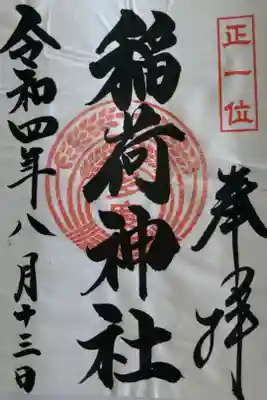 正一位
奉拝
稲荷神社
令和四年八月十三日